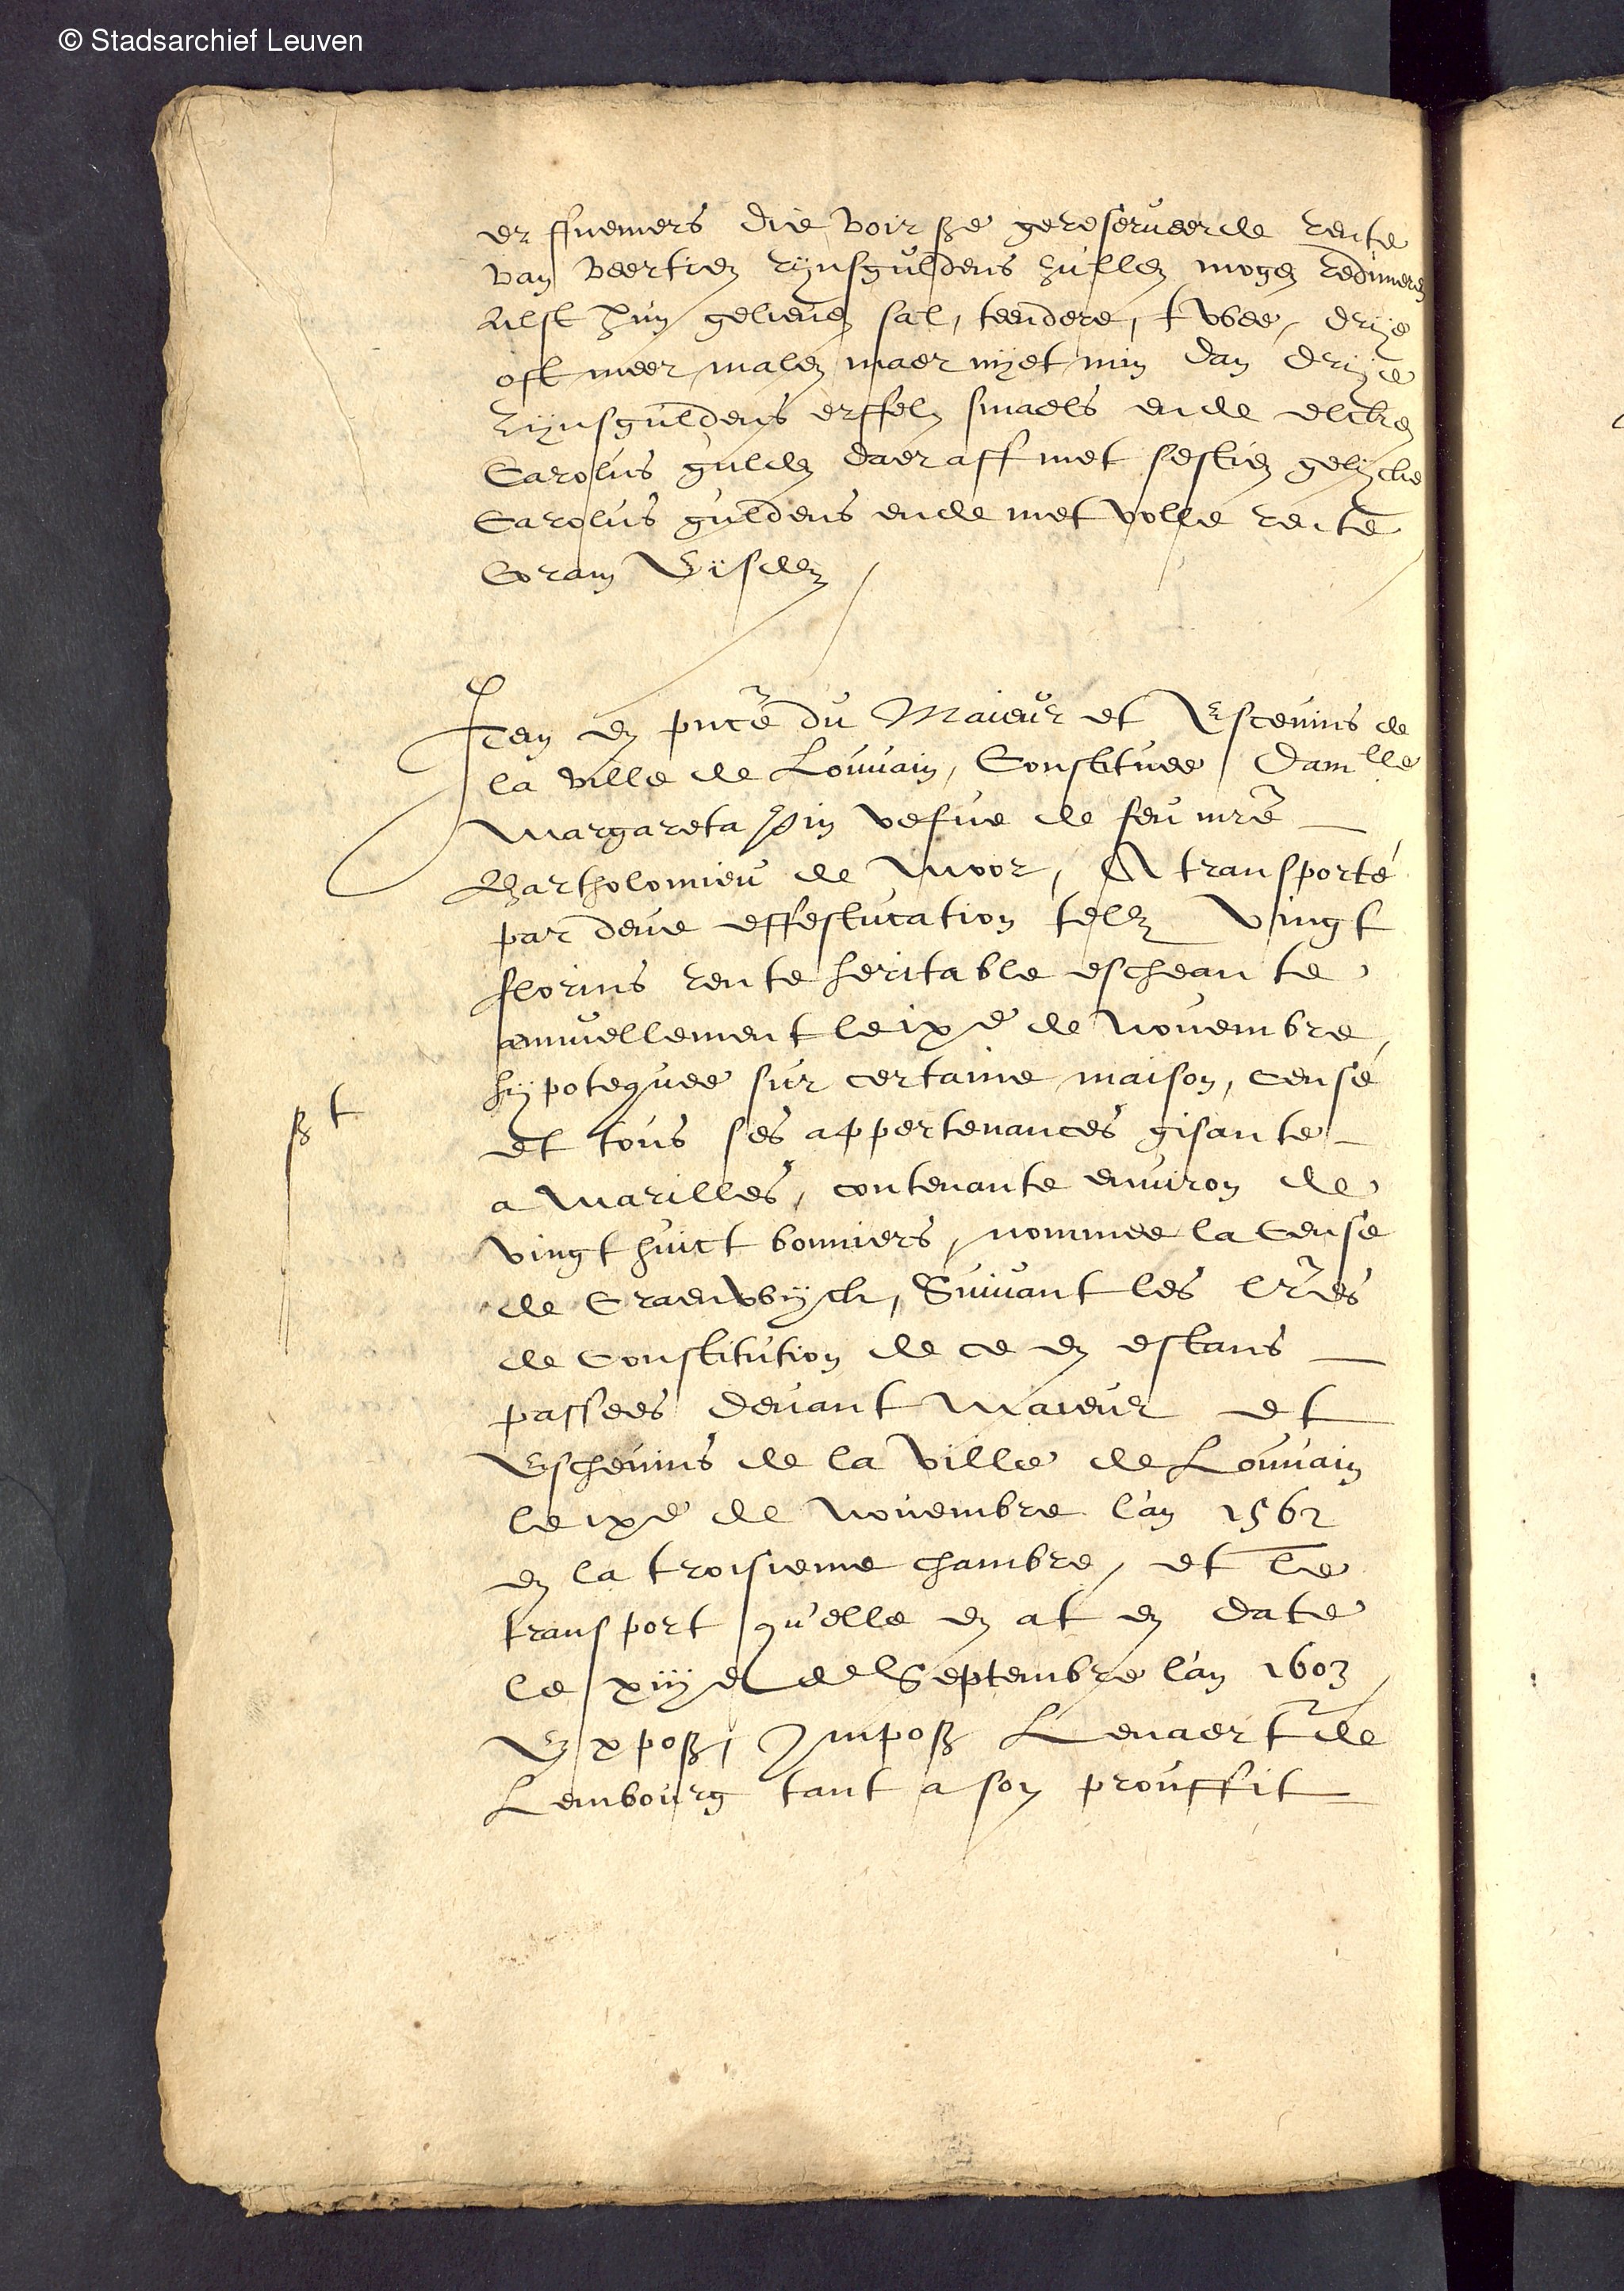 © Stadsarchief Leuven
erffnemers die voirsze gereserveerde rente
van veertien rijnsguldens sullen mogen redimeren
alst hun gelieven sal, teendere, twee, drije
oft meer malen maer nyet min dan drije
rijnsguldens erffel smaels ende elcken
Carolus gulden daeraff met sestien gelijcke
Carolus guldens ende met volle rente
Coram
Item en pnce du Maieur et Escevins de
la ville de Louvain, Constituee Dam lle
Margareta vefue de feu mre
Bartholomieu de Moor, A transporté
par deue effestucation telz vingt
florins rente heritable escheante
annuellement le ixe de Novembre,
hypotequee sur certaine maison, censé
et tous ses appertenances gisante
st
a Marilles, contenante environ de
vingt huict bonniers, nommee la Cense
de Graenwijck, Suivant les lres
de Constitution de ce en estans
passees devant Maieur et
Eschevins de la Ville de Louvain
le ixe de Novembre l'an 1562
en la troisieme chambre, et le
transport qu'elle en at en date
le xiije de Septembre l'an 1603
Expoß, Impoß Lenaert de
Lembourg tant a son prouffit